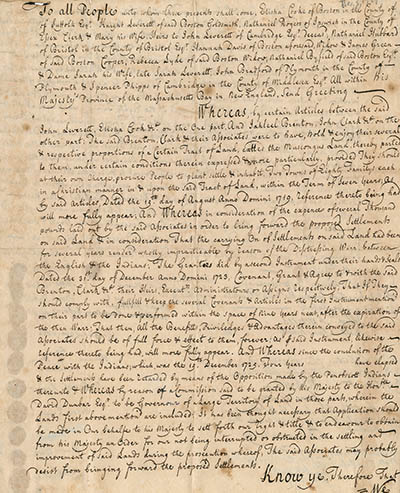 To all People unto whom these presents shall come, Elisha Cooke of Boston in the County
of Suffolk Esqr. Knight Leverett of said Boston Goldsmith, Nathaniel Rogers of Ipswich in the County of
Essex Clerk & Mary his Wife, Heirs to John Leverett of Cambridge Esqr. Deced, Nathaniel Hubbard
of Bristol in the County of Bristol Esqr. Hannah Davis of Boston aforesaid Widow & James Green
of said Boston Cooper, Rebecca Lyde of said Boston Widow, Nathaniel Byfield of said Boston Esqr.
& Dame Sarah his Wife, late Sarah Leverett, John Bradford of Plymouth in the County of
Plymouth & Spencer Phipps of Cambridge in the County of Middlesex Esqr. All within His
Majesty's Province of the Massachusetts Bay in New England, Send Greeting
Whereas by certain Articles between the said
John Leverett, Elisha Cook &c. on the One part, And Jahleel Brenton, John Clark &c. on the
other part. The said Brenton, Clark & their Associates were to have, hold & enjoy their several
& respective proportions of a certain Tract of Land, called the Muscongus Land, thereby parted
to them, under certain conditions therein expressed & more particularly, provided They should
at their own Charge, procure People to plant settle & inhabit Two Towns of Eighty Families each
in a christian manner in & upon the said Tract of Land, within the Term of Seven Years, As
by said Articles Dated the 15th day of August Anno Domini 1719. reference thereto being had
will more fully appear. And Whereas in consideration of the expence of several Thousand
pounds laid out by the said Associates in order to bring forward the proposed Settlements
on said Land & in consideration That the carrying On of Settlements on said Land had been
for several years rendred wholly impracticable by reason of the Distressing Warr between
the English & the Indians. The Grantees did by a second Instrument under their hands & seals
Dated the 31st day of December Anno Domini 1723. Covenant, Grant & Agree to & with the said
Brenton, Clark &c. their Heirs, Executrs. Administrators or Assigns respectively That if They
should comply with, fullfill & keep the several Covenants & Articles in the first Instrument mention'd
on their part to be done & performed within the space of Nine years next, after the expiration of
the then Warr. That then, All the Benefits, Priviledges & Advantages therein conveyed to the said
Associates should be of full force & effect to them forever. as p said Instrument, likewise
reference thereto being had, will more fully appear. And Whereas since the conclusion of the
Peace with the Indians, which was the 15th December 1725. Four years have elapsed
& the Settlements have been retarded by means of the Opposition made by the Penobscot Indians
thereunto & Whereas by reason of a Commission said to be granted by his Majesty to the Honble.
David Dunbar Esqr. to be Governour of a large Territory of Land in those parts, wherein the
Lands first abovementioned are included. It has been thought necessary that Application should
be made in Our behalfe to his Majesty to sett forth our Right & title & to endeavour to obtain
from his Majesty an Order for our not being interrupted or obstructed in the setling and
improvement of said Lands during the prosecution whereof, The said Associates may probably
desist from bringing forward the proposed Settlements.
Know ye, Therefore That
We